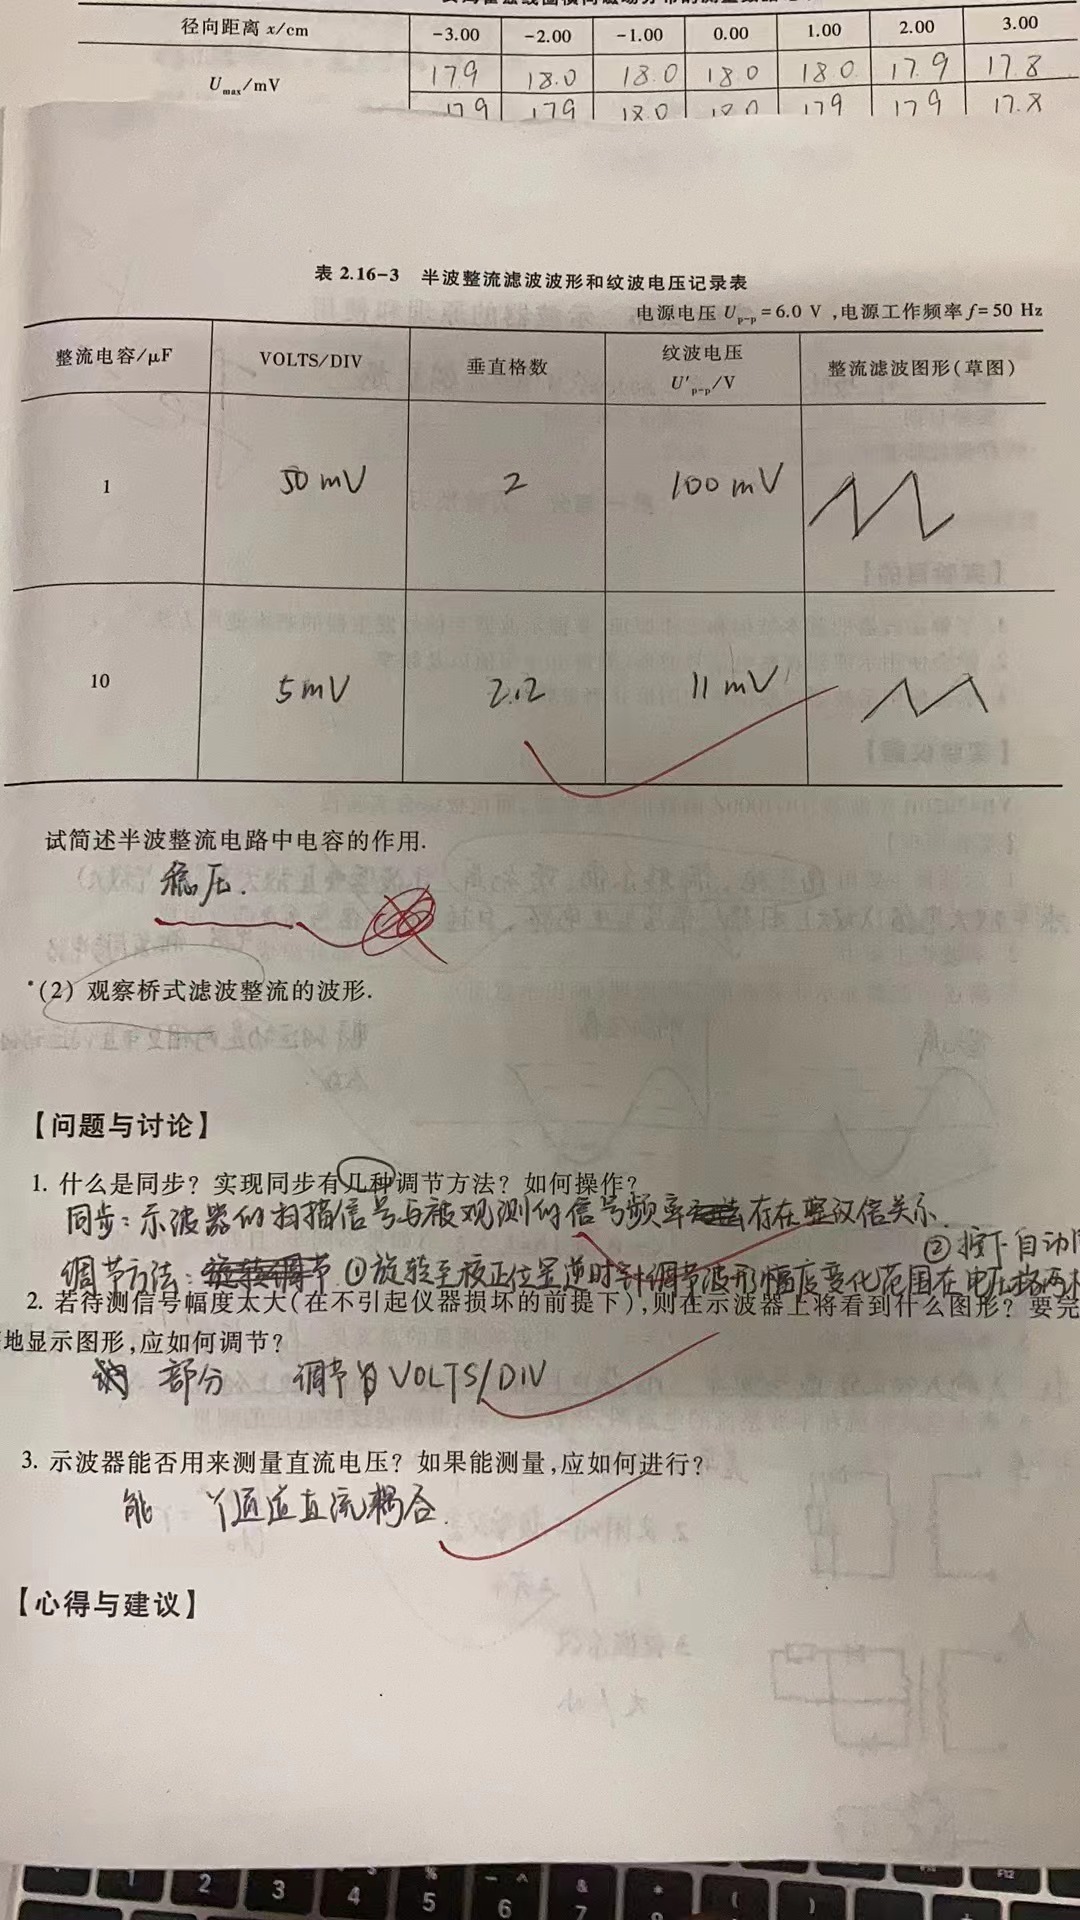 径向距离 x/cm -3.00 -2.00 -1.00 0.00 1.00 2.00 3.00
U max/mV 17.9 18.0 18.0 18.0 18.0 17.9 17.8
17.9 17.9 18.0 18.0 17.9 17.9 17.8
表 2.16-3 半波整流滤波波形和纹波电压记录表
电源电压 Up-p=6.0 V,电源工作频率 f=50 Hz
整流电容/μF VOLTS/DIV 垂直格数 纹波电压 U'p-p/V 整流滤波图形(草图)
1 50 mV 2 100 mV
10 5 mV 2.2 11 mV
试简述半波整流电路中电容的作用.
稳压.
*(2) 观察桥式滤波整流的波形.
【问题与讨论】
1. 什么是同步? 实现同步有几种调节方法? 如何操作?
同步: 示波器的扫描信号与被观测的信号频率存在整汉倍关系.
调节方法: ①旋转至校正位置逆时针调节波形幅度变化范围在电压格两 ②按下自动
2. 若待测信号幅度太大(在不引起仪器损坏的前提下),则在示波器上将看到什么图形? 要完
地显示图形,应如何调节?
部分 调节 VOLTS/DIV
3. 示波器能否用来测量直流电压? 如果能测量,应如何进行?
能 丫通道直流耦合.
【心得与建议】